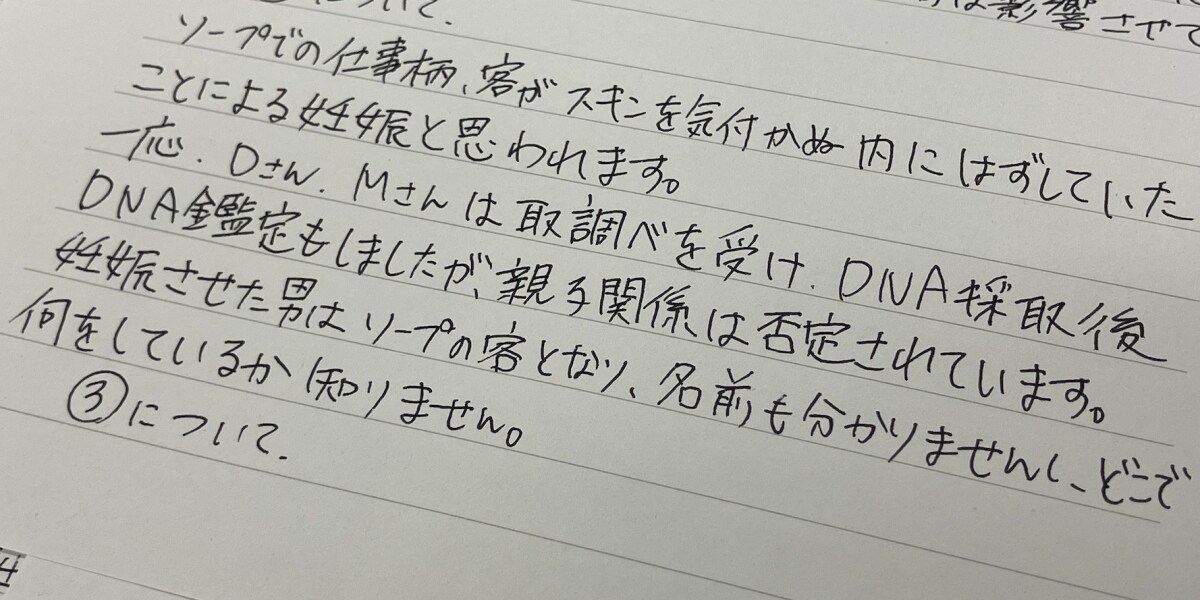 について.
は影響させて
ソープでの仕事柄、客がスキンを気付かぬ内にはずしていた
ことによる妊娠と思われます。
一応、Dさん、Mさんは取調べを受け、DNA採取後
DNA鑑定もしましたが、親子関係は否定されています。
妊娠させた男はソープの客となり、名前も分かりませんし、どこで
何をしているか知りません。
③について.